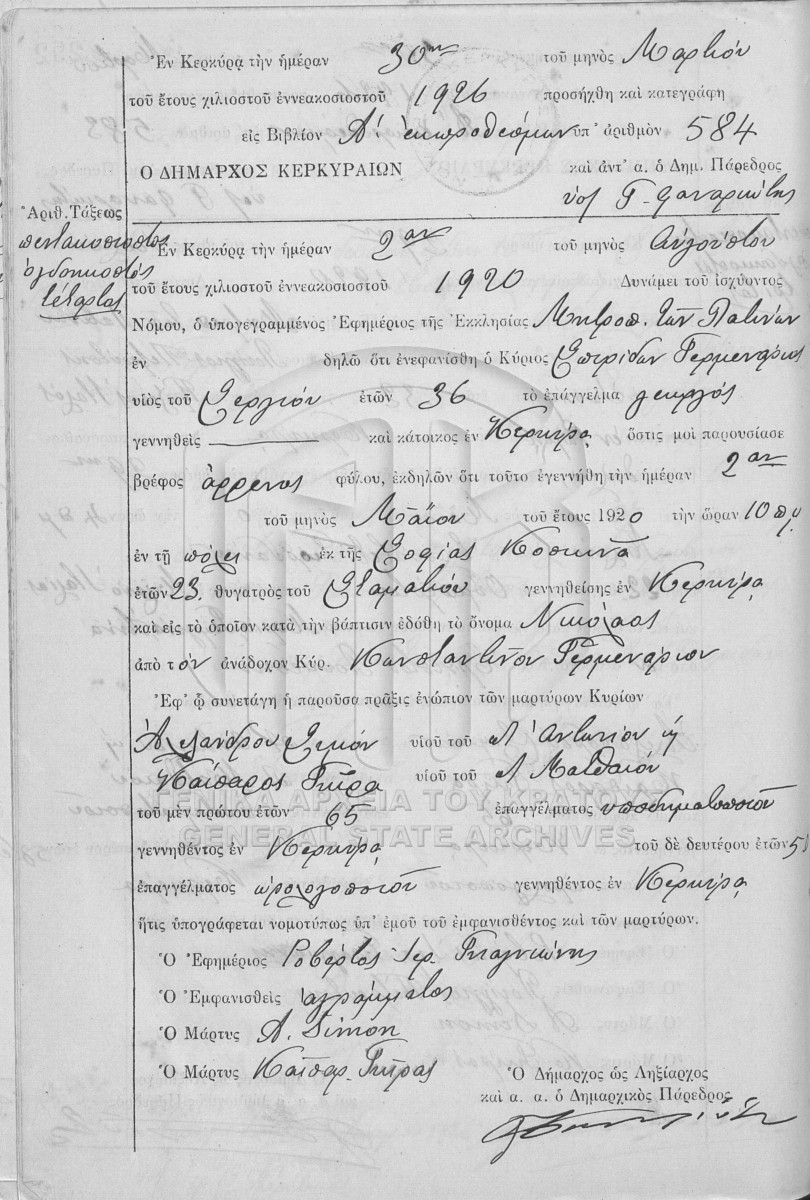 Ἐν Κερκύρᾳ τὴν ἡμέραν 30ην τοῦ μηνὸς Μαρτίου
τοῦ ἔτους χιλιοστοῦ ἐννεακοσιοστοῦ 1926 προσήχθη καὶ κατεγράφη
εἰς Βιβλίον Α' ἐκπροθέσμων ὑπ' ἀριθμὸν 584
Ο ΔΗΜΑΡΧΟΣ ΚΕΡΚΥΡΑΙΩΝ καὶ ἀντ' α. ὁ Δημ. Πάρεδρος
Γ.
Ἀριθ. Τάξεως
πεντακοσιοστὸς
ὀγδοηκοστὸς
τέταρτος
Ἐν Κερκύρᾳ τὴν ἡμέραν 2αν τοῦ μηνὸς Αὐγούστου
τοῦ ἔτους χιλιοστοῦ ἐννεακοσιοστοῦ 1920 Δυνάμει τοῦ ἰσχύοντος
Νόμου, ὁ ὑπογεγραμμένος Ἐφημέριος τῆς Ἐκκλησίας Μητροπ. τῶν Λατίνων
ἐν δηλῶ ὅτι ἐνεφανίσθη ὁ Κύριος Σπυρίδων Γερμενάριος
υἱὸς τοῦ Σεργίου ἐτῶν 36 τὸ ἐπάγγελμα γεωργός
γεννηθεὶς καὶ κάτοικος ἐν Κερκύρᾳ ὅστις μοὶ παρουσίασε
βρέφος ἄρρενος φύλου, ἐκδηλῶν ὅτι τοῦτο ἐγεννήθη τὴν ἡμέραν 2αν
τοῦ μηνὸς Μαΐου τοῦ ἔτους 1920 τὴν ὥραν 10 π.μ.
ἐν τῇ πόλει ἐκ τῆς Σοφίας Κοσκινᾶ
ἐτῶν 23. θυγατρὸς τοῦ Σταματίου γεννηθείσης ἐν Κερκύρᾳ
καὶ εἰς τὸ ὁποῖον κατὰ τὴν βάπτισιν ἐδόθη τὸ ὄνομα Νικόλαος
ἀπὸ τὸν ἀνάδοχον Κύρ. Κωνσταντῖνον Γερμενάριον
Ἐφ' ᾧ συνετάγη ἡ παροῦσα πρᾶξις ἐνώπιον τῶν μαρτύρων Κυρίων
Ἀλεξάνδρου Σιμὸν υἱοῦ τοῦ Ἀντωνίου ἢ
Καίσαρος υἱοῦ τοῦ Ματθαίου
τοῦ μὲν πρώτου ἐτῶν 65 ἐπαγγέλματος ὑποδηματοποιοῦ
γεννηθέντος ἐν Κερκύρᾳ τοῦ δὲ δευτέρου ἐτῶν
ἐπαγγέλματος ὡρολογοποιοῦ γεννηθέντος ἐν Κερκύρᾳ
ἥτις ὑπογράφεται νομοτύπως ὑπ' ἐμοῦ τοῦ ἐμφανισθέντος καὶ τῶν μαρτύρων.
Ὁ Ἐφημέριος Ροβέρτος Ἱερ.
Ὁ Ἐμφανισθεὶς ἀγράμματος
Ὁ Μάρτυς A. Simon
Ὁ Μάρτυς Καίσαρ
Ὁ Δήμαρχος ὡς Ληξίαρχος
καὶ α. α. ὁ Δημαρχικὸς Πάρεδρος
ΓΕΝΙΚΑ ΑΡΧΕΙΑ ΤΟΥ ΚΡΑΤΟΥΣ
GENERAL STATE ARCHIVES